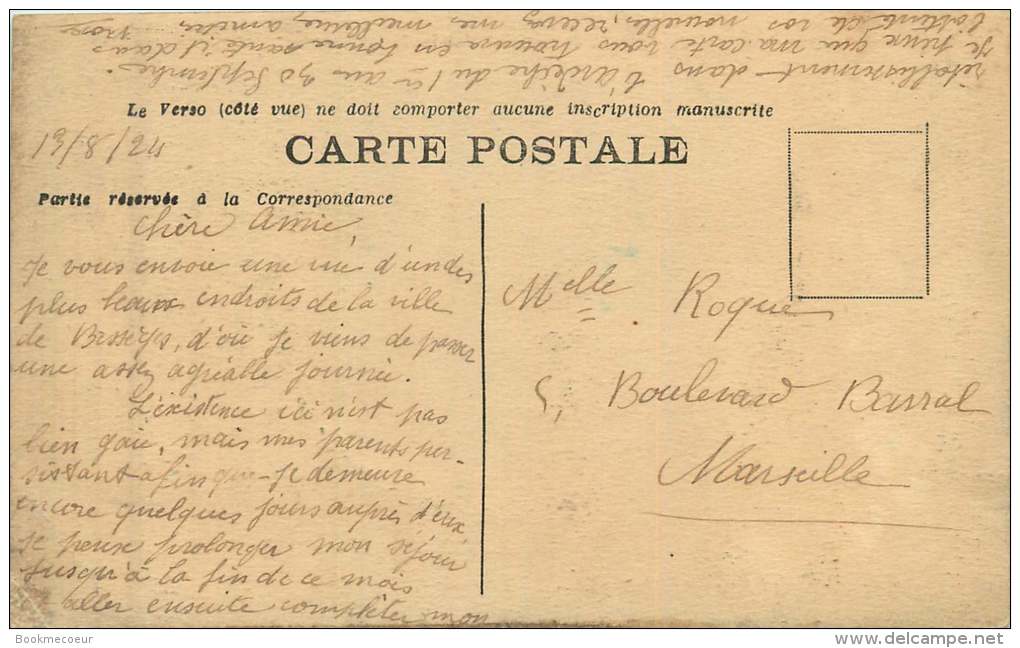 Le Verso (côté vue) ne doit comporter aucune inscription manuscrite
CARTE POSTALE
13/8/24
Partie réservée à la Correspondance
Chère Amie,
Je vous envoie une vue d'un des
plus beaux endroits de la ville
de Bessèges, d'où je viens de passer
une assez agréable journée.
L'existence ici n'est pas
bien gaie, mais mes parents per-
sistant afin que je demeure
encore quelques jours auprès d'eux
je peux prolonger mon séjour
jusqu'à la fin de ce mois
aller ensuite compléter mon
rétablissement dans l'Ardèche du 1er au 30 Septembre.
Je pense que ma carte vous trouvera en bonne santé et dans
l'attente de vos nouvelles, recevez mes meilleures amitiés
Melle Roque
5, Boulevard Barral
Marseille
Bookmecoeur
delcampe.net